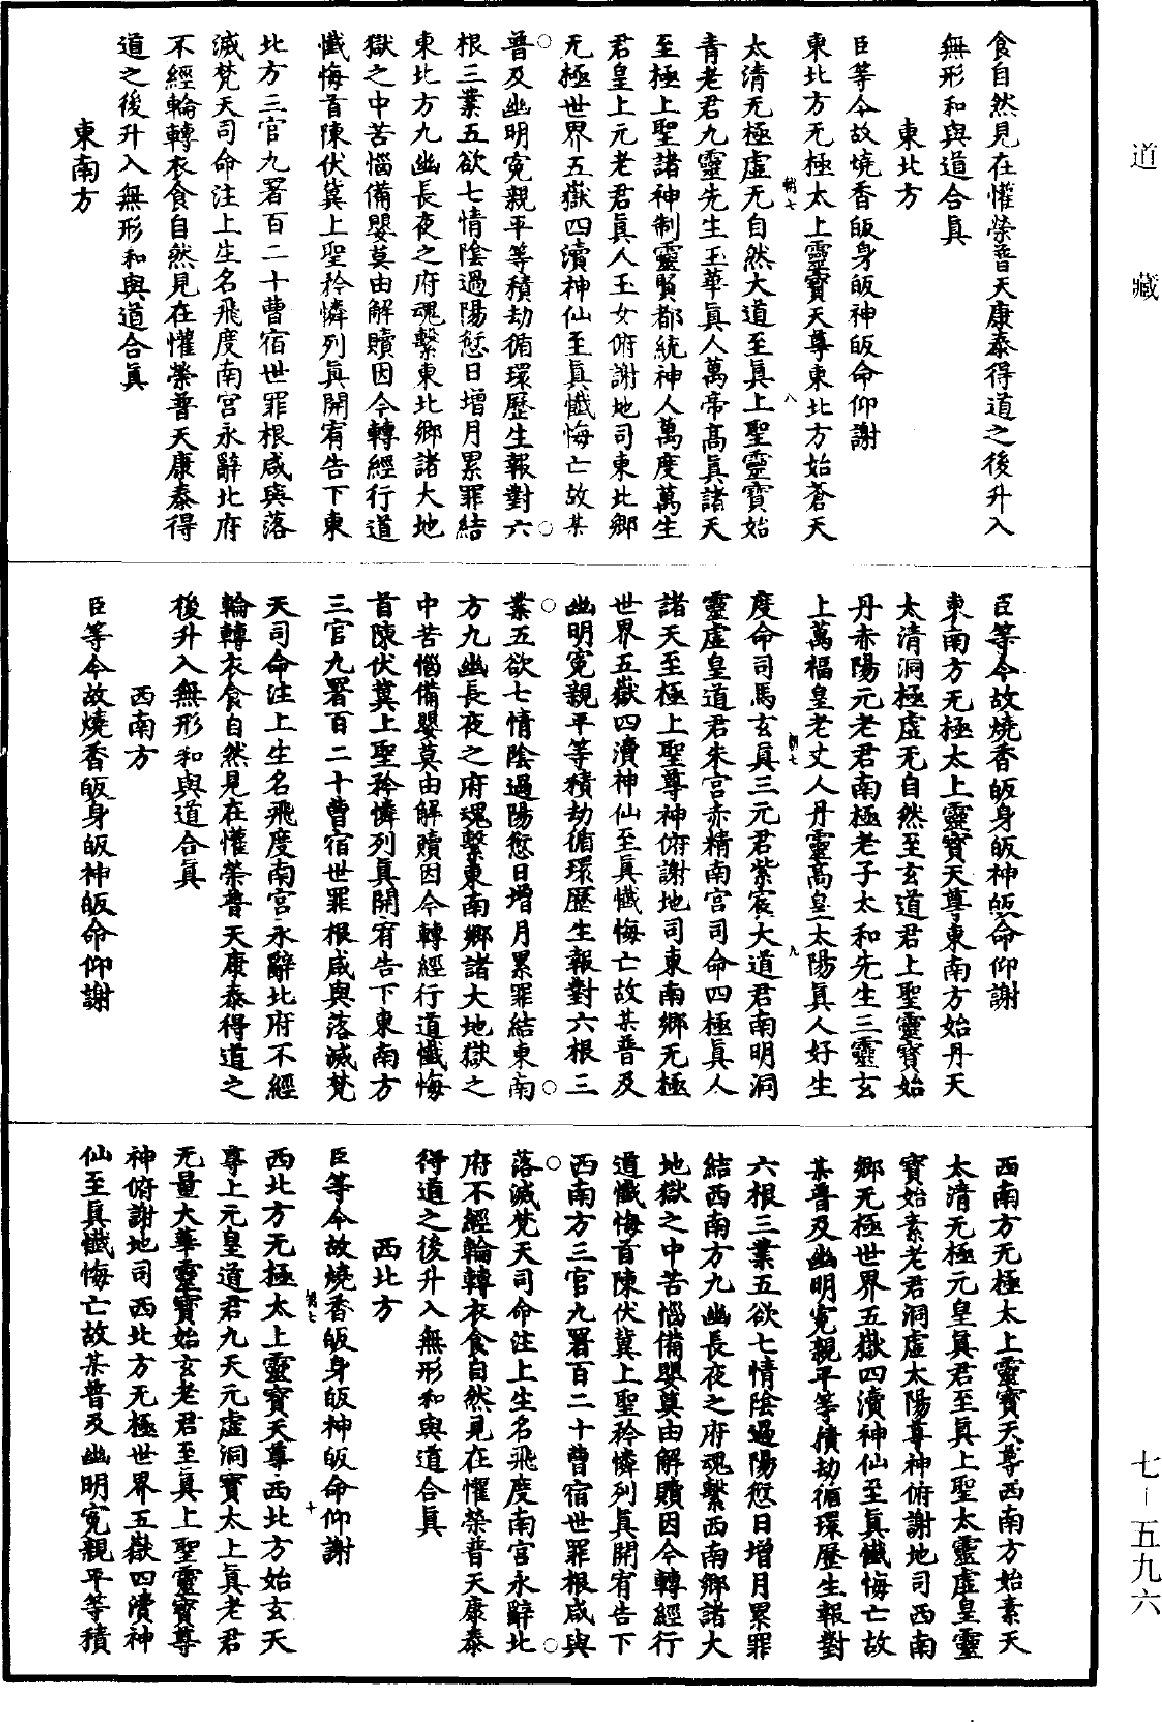 道藏
食自然見在懽榮普天康泰得道之後升入
無形和與道合眞
東北方
臣等今故燒香皈身皈神皈命仰謝
東北方无極太上靈寶天尊東北方始蒼天
太清无極虛无自然大道至眞上聖靈寶始
青老君九靈先生玉華眞人萬帝高眞諸天
至極上聖諸神制靈賢都統神人萬度萬生
君皇上元老君眞人玉女俯謝地司東北鄉
无極世界五嶽四瀆神仙至眞懺悔亡故某
普及幽明寃親平等積劫循環歷生報對六
根三業五欲七情陰過陽愆日增月累罪結
東北方九幽長夜之府魂繫東北鄉諸大地
獄之中苦惱備嬰莫由解贖因今轉經行道
懺悔首陳伏冀上聖矜憐列眞開宥告下東
北方三官九署百二十曹宿世罪根咸與落
滅梵天司命注上生名飛度南宮永辭北府
不經輪轉衣食自然見在懽榮普天康泰得
道之後升入無形和與道合眞
東南方
臣等今故燒香皈身皈神皈命仰謝
東南方无極太上靈寶天尊東南方始丹天
太清洞極虛无自然至玄道君上聖靈寶始
丹赤陽元老君南極老子太和先生三靈玄
上萬福皇老丈人丹靈高皇太陽眞人好生
度命司馬玄眞三元君紫宸大道君南明洞
靈虛皇道君朱宮赤精南宮司命四極眞人
諸天至極上聖尊神俯謝地司東南鄉无極
世界五嶽四瀆神仙至眞懺悔亡故某普及
幽明寃親平等積劫循環歷生報對六根三
業五欲七情陰過陽愆日增月累罪結東南
方九幽長夜之府魂繫東南鄉諸大地獄之
中苦惱備嬰莫由解贖因今轉經行道懺悔
首陳伏冀上聖矜憐列眞開宥告下東南方
三官九署百二十曹宿世罪根咸與落滅梵
天司命注上生名飛度南宮永辭北府不經
輪轉衣食自然見在懽榮普天康泰得道之
後升入無形和與道合眞
西南方
臣等今故燒香皈身皈神皈命仰謝
西南方无極太上靈寶天尊西南方始素天
太清无極元皇眞君至眞上聖太靈虛皇靈
寶始素老君洞虛太陽尊神俯謝地司西南
鄉无極世界五嶽四瀆神仙至眞懺悔亡故
某普及幽明寃親平等積劫循環歷生報對
六根三業五欲七情陰過陽愆日增月累罪
結西南方九幽長夜之府魂繫西南鄉諸大
地獄之中苦惱備嬰莫由解贖因今轉經行
道懺悔首陳伏冀上聖矜憐列眞開宥告下
西南方三官九署百二十曹宿世罪根咸與
落滅梵天司命注上生名飛度南宮永辭北
府不經輪轉衣食自然見在懽榮普天康泰
得道之後升入無形和與道合眞
西北方
臣等今故燒香皈身皈神皈命仰謝
西北方无極太上靈寶天尊西北方始玄天
尊上元皇道君九天元虛洞寶太上眞老君
无量大華靈寶始玄老君至眞上聖靈寶尊
神俯謝地司西北方无極世界五嶽四瀆神
仙至眞懺悔亡故某普及幽明寃親平等積
七－五九六